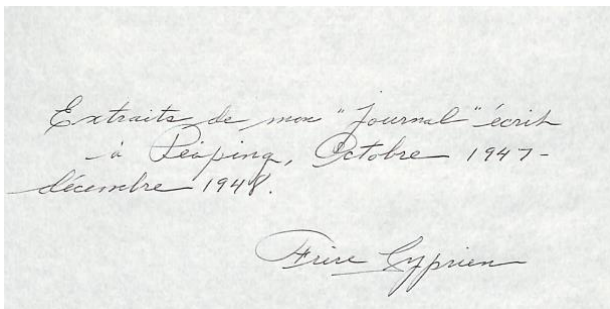 Extraits de mon "Journal" écrit
à Péiping, Octobre 1947-
décembre 1948.
Frère Cyprien